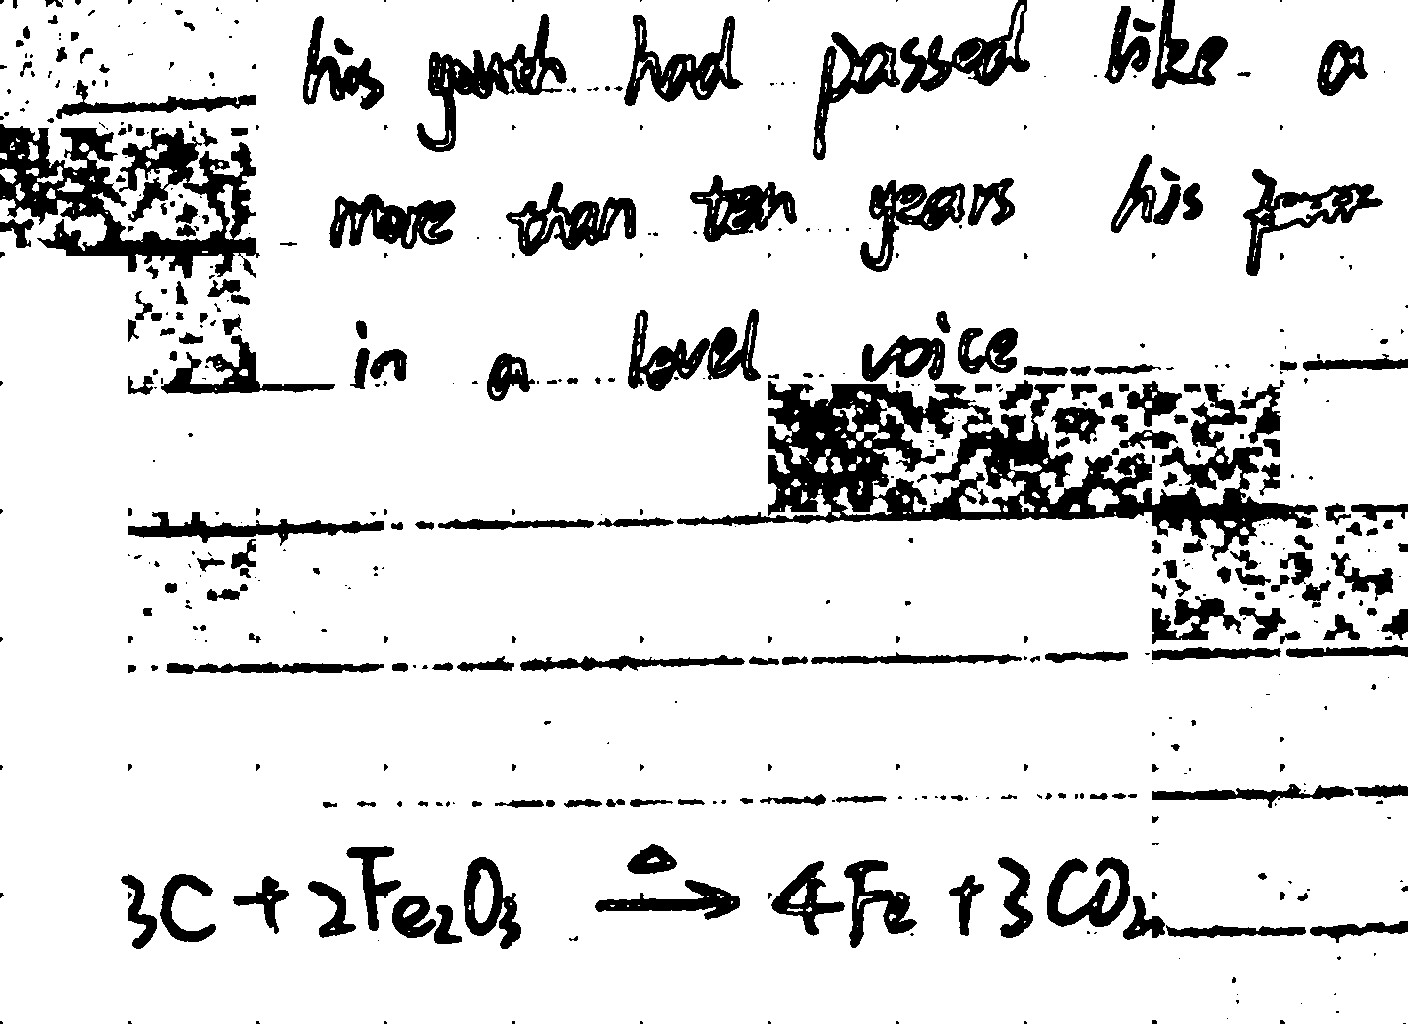 his youth had passed like a
more than ten years his
in a level voice
3C + 2Fe₂O₃ \xrightarrow{\Delta} 4Fe + 3CO₂